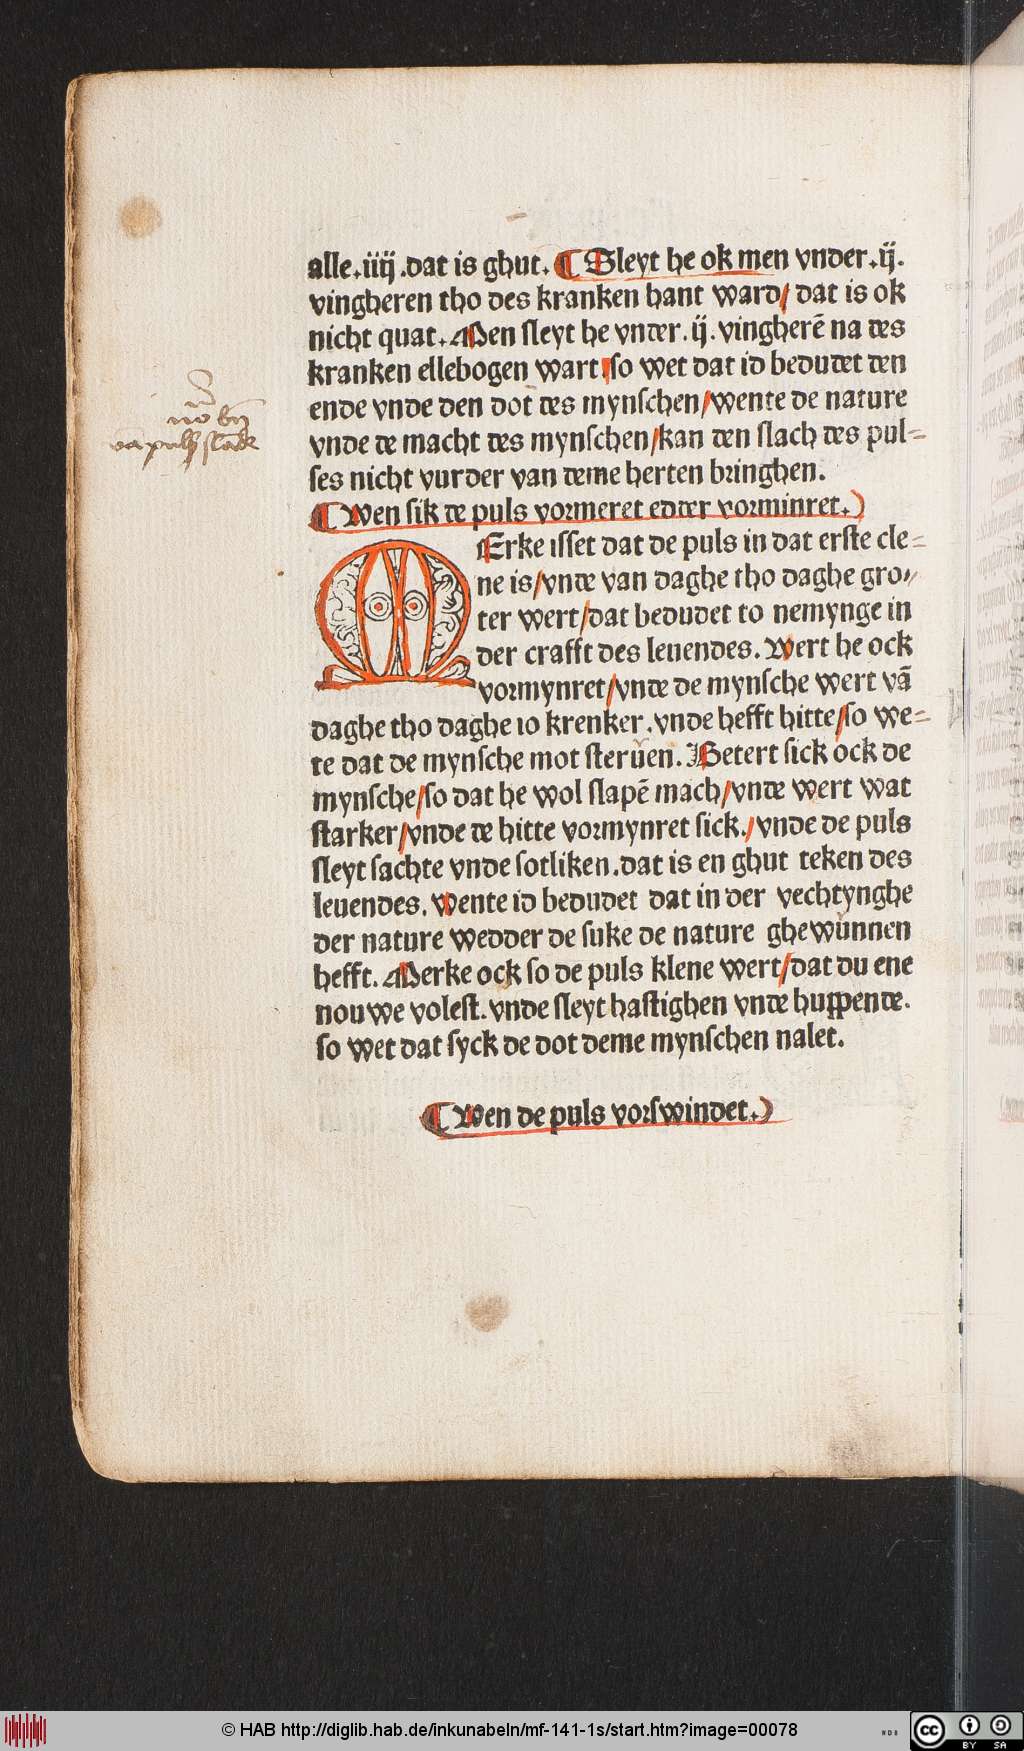 alle.iiij.dat is ghut. ¶ Sleyt he ok men vnder.ij.
vingheren tho des kranken hant ward/ dat is ok
nicht quat. Men sleyt he vnder.ij.vingherē na des
kranken ellebogen wart.so wet dat id bedudet den
ende vnde den dot des mynschen/wente de nature
vnde de macht des mynschen/kan den slach des pul=
ses nicht vurder van deme herten bringhen.
¶ Wen sik de puls vormeret edder vorminret.)
MErke isset dat de puls in dat erste cle=
ne is/vnde van daghe tho daghe gro=
ter wert/dat bedudet to nemynge in
der crafft des leuendes. Wert he ock
vormynret/vnde de mynsche wert vā
daghe tho daghe io krenker.vnde hefft hitte/so we=
te dat de mynsche mot steruen. Betert sick ock de
mynsche/so dat he wol slapē mach/vnde wert wat
starker/vnde de hitte vormynret sick./vnde de puls
sleyt sachte vnde sotliken.dat is en ghut teken des
leuendes. Wente id bedudet dat in der vechtynghe
der nature wedder de suke de nature ghewunnen
hefft. Merke ock so de puls klene wert/dat du ene
nouwe volest.vnde sleyt hastighen vnde huppende.
so wet dat syck de dot deme mynschen nalet.
¶ Wen de puls vorswindet.)
© HAB http://diglib.hab.de/inkunabeln/mf-141-1s/start.htm?image=00078
WDB
cc BY SA